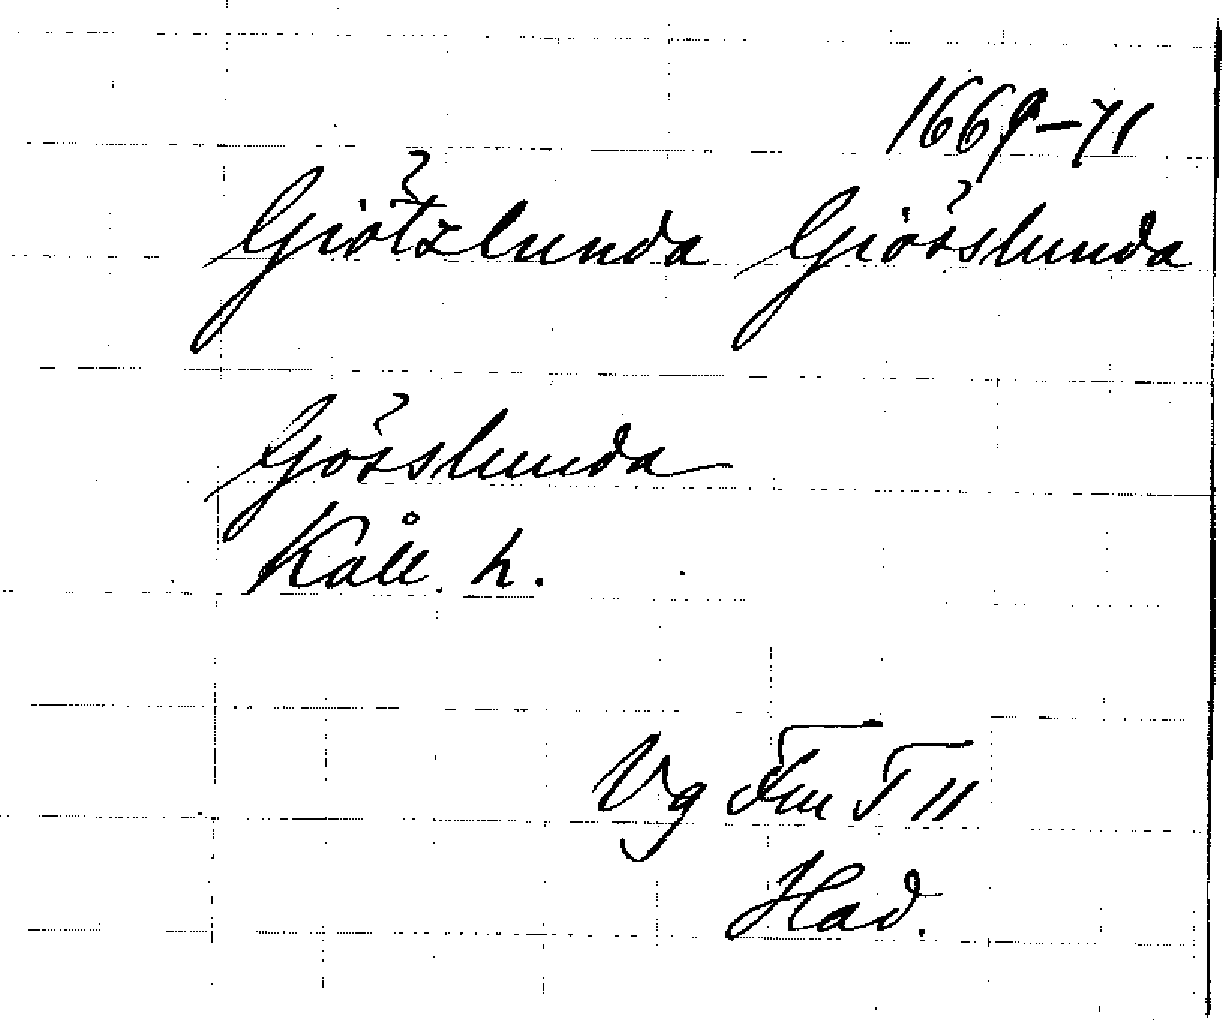 1669-71
Giötzlunda Giösslunda
Gösslunda
Kåll. h.
Vg Fm T II
Had.